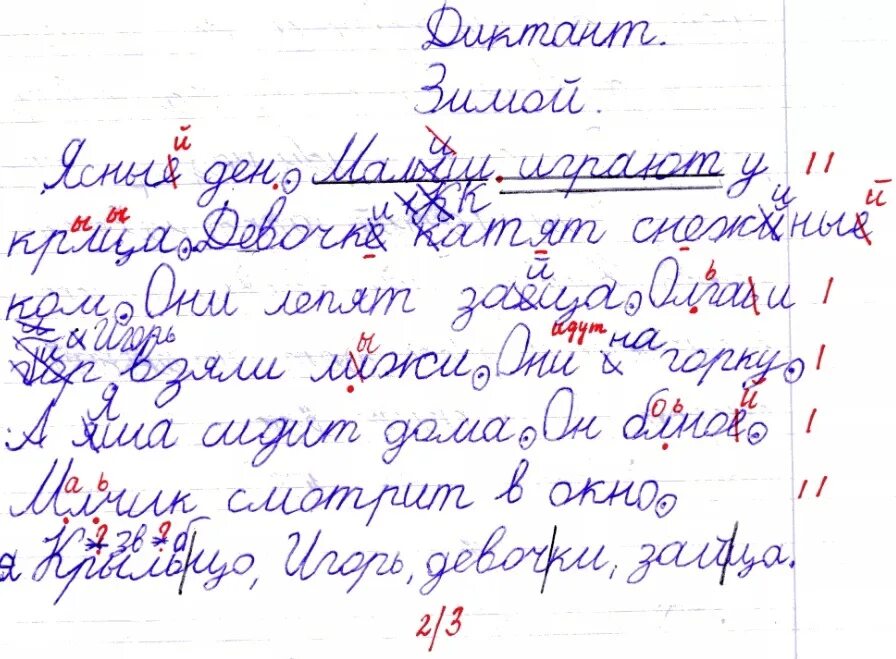 Диктант.
Зимой.
Ясный ден. Малыши играют у
крыца. Девочки катят снежный
ком. Они лепят зайца. Олга и
Игорь взяли лыжи. Они идут на горку.
А Яма сидит дома. Он блной.
Малчик смотрит в окно.
Крыльцо, Игорь, девочки, зайца.
2/3